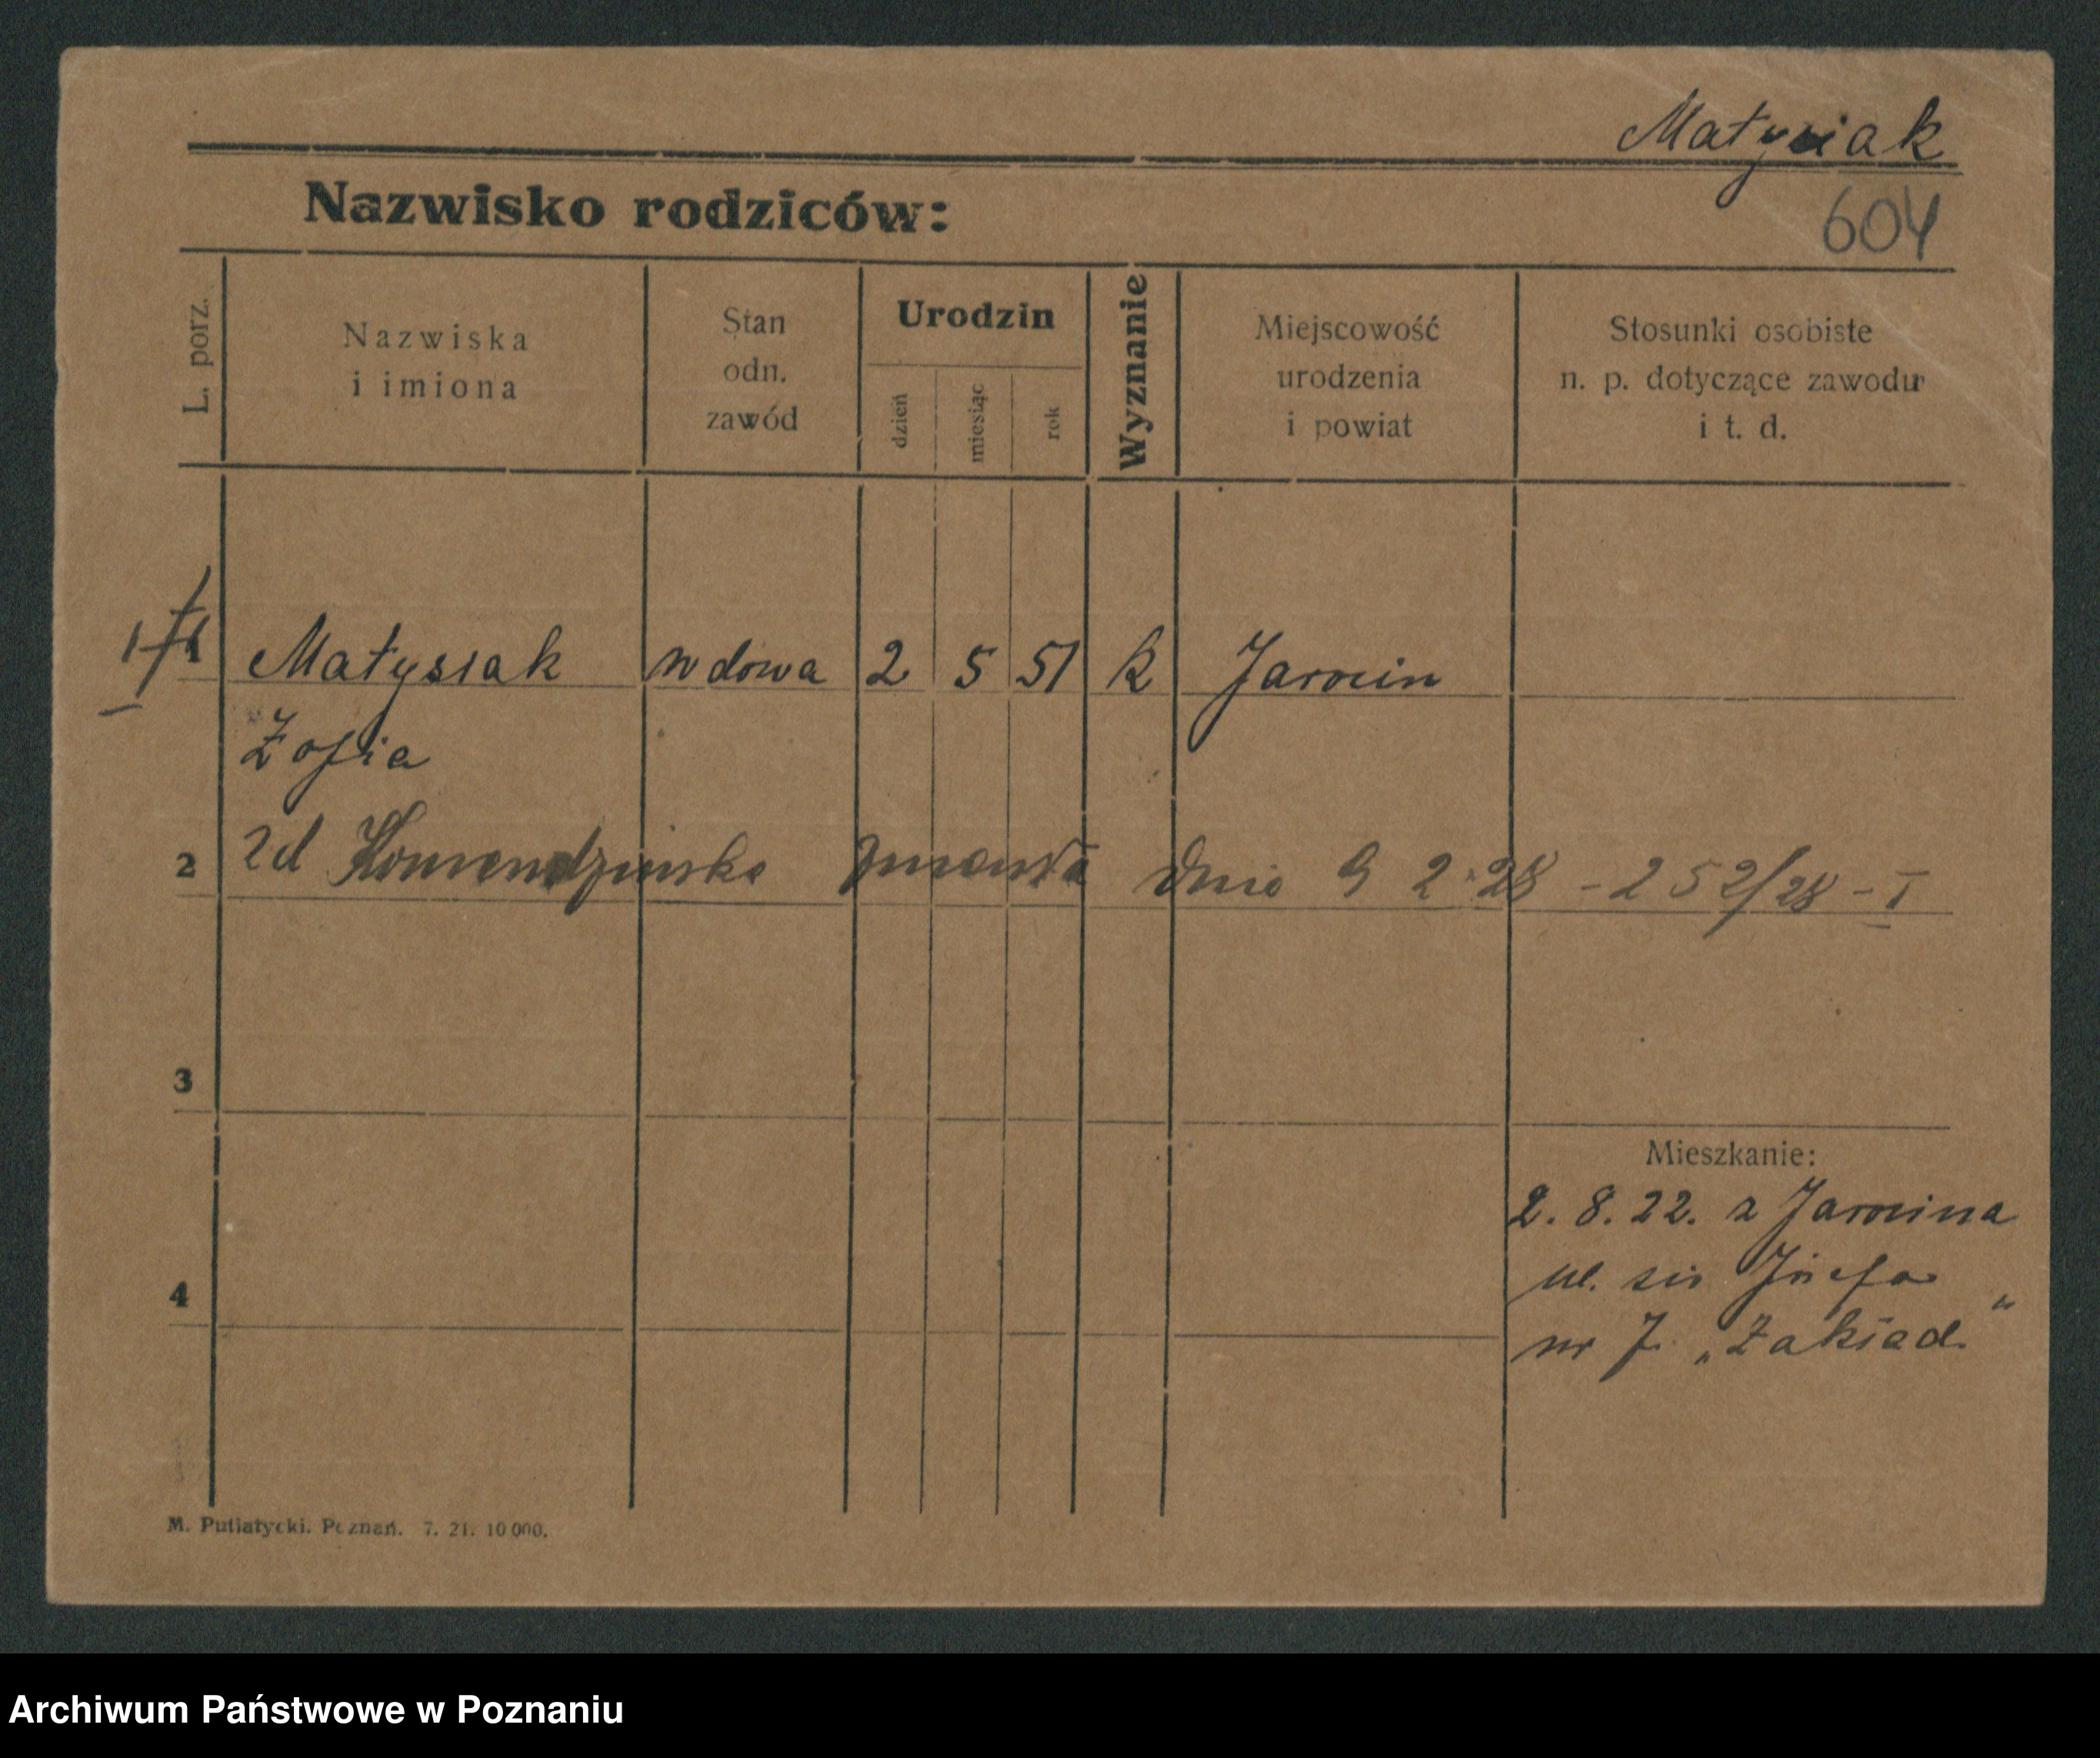 Matysiak
Nazwisko rodziców:
604
L. porz.
Nazwiska
i imiona
Stan
odn.
zawód
Urodzin
dzień
miesiąc
rok
Wyznanie
Miejscowość
urodzenia
i powiat
Stosunki osobiste
n. p. dotyczące zawodu
i t. d.
1 Matysiak wdowa 2 5 51 k Jarocin
Zofia
2 zd zmarła dnia 9 2.28 - 252/28 - I
3
Mieszkanie:
2. 8. 22. z Jarocina
ul. św Józefa
4
nr 7. „Zakład."
M. Putiatycki. Poznań. 7. 21. 10 000.
Archiwum Państwowe w Poznaniu